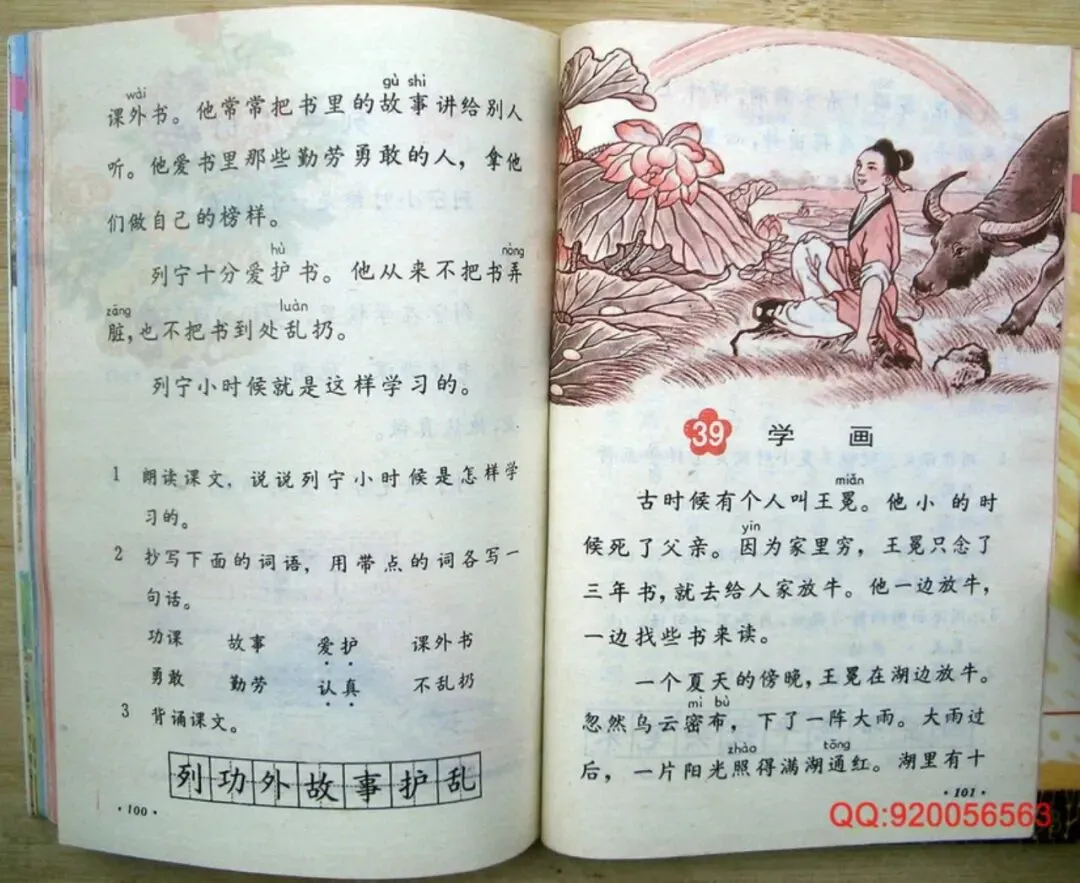 wài gù shi
课外书。他常常把书里的故事讲给别人
听。他爱书里那些勤劳勇敢的人，拿他
们做自己的榜样。
hù nòng
列宁十分爱护书。他从来不把书弄
zāng luàn
脏，也不把书到处乱扔。
列宁小时候就是这样学习的。
1 朗读课文，说说列宁小时候是怎样学
习的。
2 抄写下面的词语，用带点的词各写一
句话。
功课 故事 爱护 课外书
勇敢 勤劳 认真 不乱扔
3 背诵课文。
列功外故事护乱
·100·
39 学画
miǎn
古时候有个人叫王冕。他小的时
yīn
候死了父亲。因为家里穷，王冕只念了
三年书，就去给人家放牛。他一边放牛，
一边找些书来读。
一个夏天的傍晚，王冕在湖边放牛。
mì bù
忽然乌云密布，下了一阵大雨。大雨过
zhào tōng
后，一片阳光照得满湖通红。湖里有十
·101·
QQ:920056563